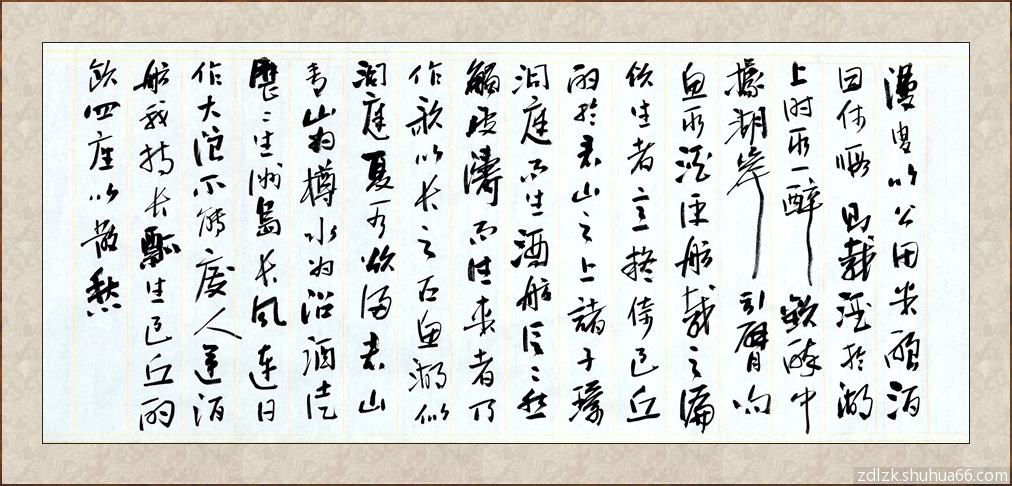 漫叟以公田米酿酒
因休暇則載酒於湖
上时取一醉歡醉中
據湖岸引臂向
鱼取酒使舫载之遍
饮坐者意疑倚巴丘
酌於君山之上諸子環
洞庭而坐酒舫泛〻然
觸波濤而往来者乃
作歌以长之石鱼湖似
洞庭夏水欲满君山
青山为樽水为沼酒徒
歷〻坐洲島长风连日
作大浪不能废人运酒
舫我持长瓢坐巴丘酌
饮四座以散愁
zdlzk.shuhua66.com